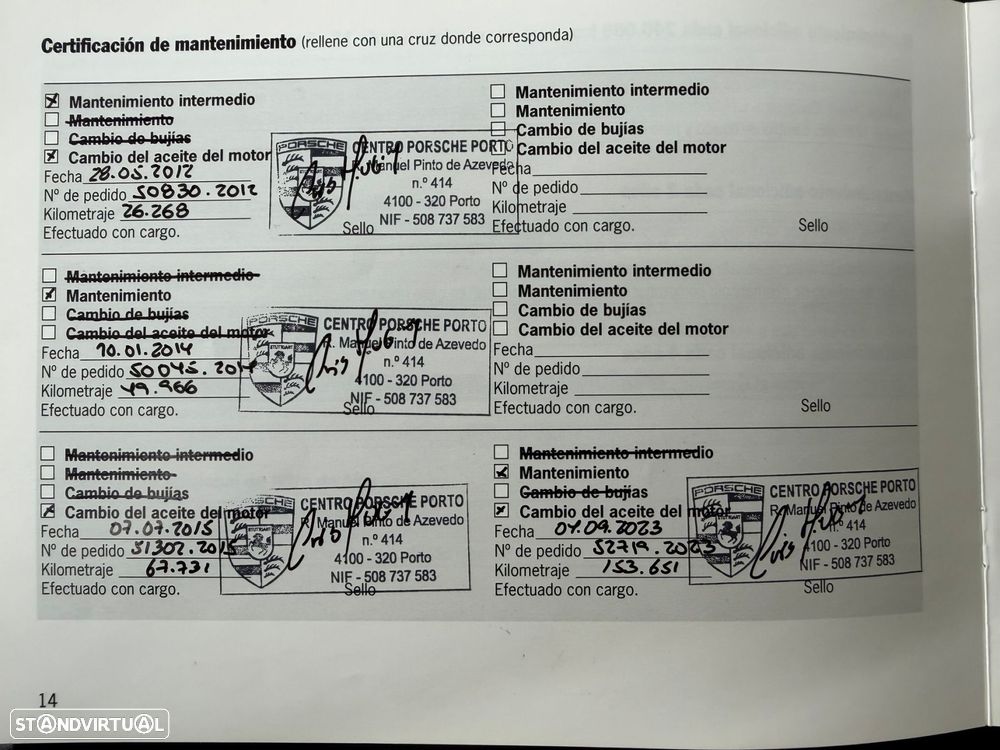 Certificación de mantenimiento (rellene con una cruz donde corresponda)
Mantenimiento intermedio
Mantenimiento
Cambio de bujías
Cambio del aceite del motor
Fecha 28.05.2012
Nº de pedido 50830.2012
Kilometraje 26.268
Efectuado con cargo.
Sello
PORSCHE
CENTRO PORSCHE PORTO
R. Manuel Pinto de Azevedo
n.º 414
4100 - 320 Porto
NIF - 508 737 583
Mantenimiento intermedio
Mantenimiento
Cambio de bujías
Cambio del aceite del motor
Fecha
Nº de pedido
Kilometraje
Efectuado con cargo.
Sello
Mantenimiento intermedio
Mantenimiento
Cambio de bujías
Cambio del aceite del motor
Fecha 10.01.2014
Nº de pedido 50045.2014
Kilometraje 49.966
Efectuado con cargo.
Sello
PORSCHE
STUTTGART
CENTRO PORSCHE PORTO
R. Manuel Pinto de Azevedo
n.º 414
4100 - 320 Porto
NIF - 508 737 583
Mantenimiento intermedio
Mantenimiento
Cambio de bujías
Cambio del aceite del motor
Fecha
Nº de pedido
Kilometraje
Efectuado con cargo.
Sello
Mantenimiento intermedio
Mantenimiento
Cambio de bujías
Cambio del aceite del motor
Fecha 07.07.2015
Nº de pedido 51302.2015
Kilometraje 67.731
Efectuado con cargo.
Sello
PORSCHE
STUTTGART
CENTRO PORSCHE PORTO
R. Manuel Pinto de Azevedo
n.º 414
4100 - 320 Porto
NIF - 508 737 583
Mantenimiento intermedio
Mantenimiento
Cambio de bujías
Cambio del aceite del motor
Fecha 04.09.2023
Nº de pedido 52719.2023
Kilometraje 153.651
Efectuado con cargo.
Sello
PORSCHE
STUTTGART
CENTRO PORSCHE PORTO
R. Manuel Pinto de Azevedo
n.º 414
4100 - 320 Porto
NIF - 508 737 583
14
STANDVIRTUAL